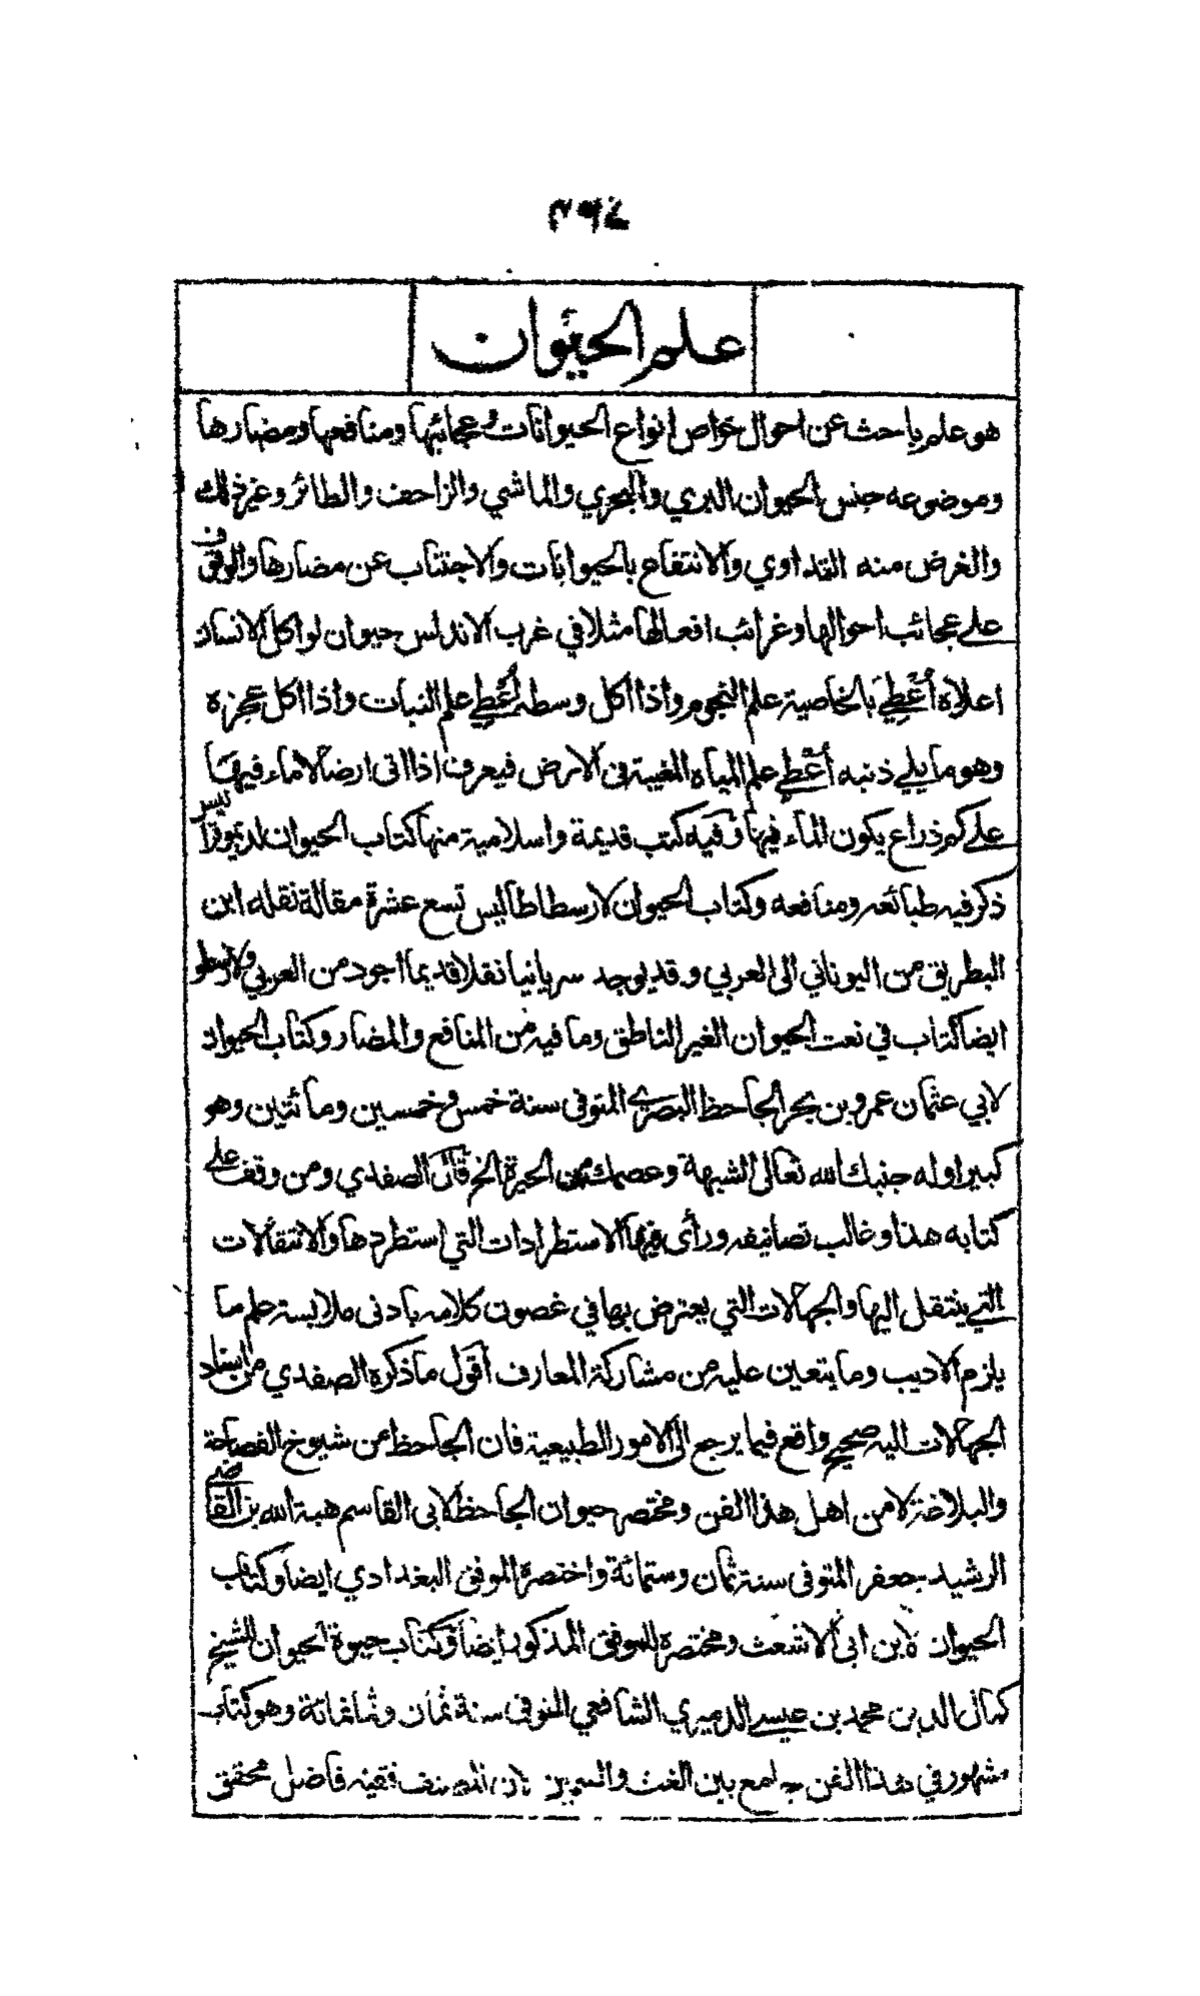 ٣٩٤
علم الحيوان
هو علم باحث عن احوال خواص انواع الحيوانات وعجائبها ومنافعها ومضارها
وموضوعه جنس الحيوان البري والبحري والماشي والزاحف والطائر وغير ذلك
والغرض منه التداوي والانتفاع بالحيوانات والاجتناب عن مضارها والوقوف
على عجائب احوالها وغرائب افعالها مثلا في غرب الاندلس حيوان لو اكل الانسان
اعلاه أُعْطِيَ بالخاصية علم النجوم واذا اكل وسطه أُعْطِي علم النبات واذا اكل عجزه
وهو ما يلي ذنبه أُعْطِي علم المياه المغيبة في الارض فيعرف اذا اتى ارضا لا ماء فيها
على كم ذراع يكون الماء فيها وفيه كتب قديمة واسلامية منها كتاب الحيوان لديموقراطيس
ذكر فيه طبائعه ومنافعه وكتاب الحيوان لارسطاطاليس تسع عشرة مقالة نقله ابن
البطريق من اليوناني الى العربي وقد يوجد سريانيا نقلا قديما اجود من العربي ولارسطو
ايضا كتاب في نعت الحيوان الغير الناطق وما فيه من المنافع والمضار وكتاب الحيوان
لابي عثمان عمرو بن بحر الجاحظ البصري المتوفى سنة خمس وخمسين ومائتين وهو
كبير اوله جنبك الله تعالى الشبهة وعصمك من الحيرة الخ قال الصفدي ومن وقف على
كتابه هذا وغالب تصانيفه ورأى فيها الاستطرادات التي استطردها والانتقالات
التي ينتقل اليها والجهالات التي يعترض بها في غصون كلامه بادنى ملابسة علم ما
يلزم الاديب وما يتعين عليه من مشاركة المعارف أقول ما ذكره الصفدي من اسناد
الجهالات اليه صحيح واقع فيما يرجع الى الامور الطبيعية فان الجاحظ من شيوخ الفصاحة
والبلاغة لا من اهل هذا الفن ومختصر حيوان الجاحظ لابي القاسم هبة الله بن القاضي
الرشيد جعفر المتوفى سنة ثمان وستمائة واختصره الموفق البغدادي ايضا وكتاب
الحيوان لابن ابي الاشعث ومختصره للموفق المذكور ايضا وكتاب حيوة الحيوان للشيخ
كمال الدين محمد بن عيسى الدميري الشافعي المتوفى سنة ثمان وثمانمائة وهو كتاب
مشهور في هذا الفن جامع بين الغث والسمين لان المصنف فقيه فاضل محقق